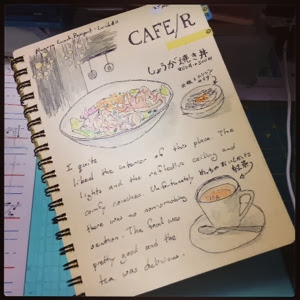 Lunch
CAFE/R
しょうが焼き丼
I quite
liked the interior of this place. The
lights and the reflective ceiling and
comfy couches. Unfortunately
there was no non-smoking
section. The food was
pretty good and the
tea was delicious.
紅茶